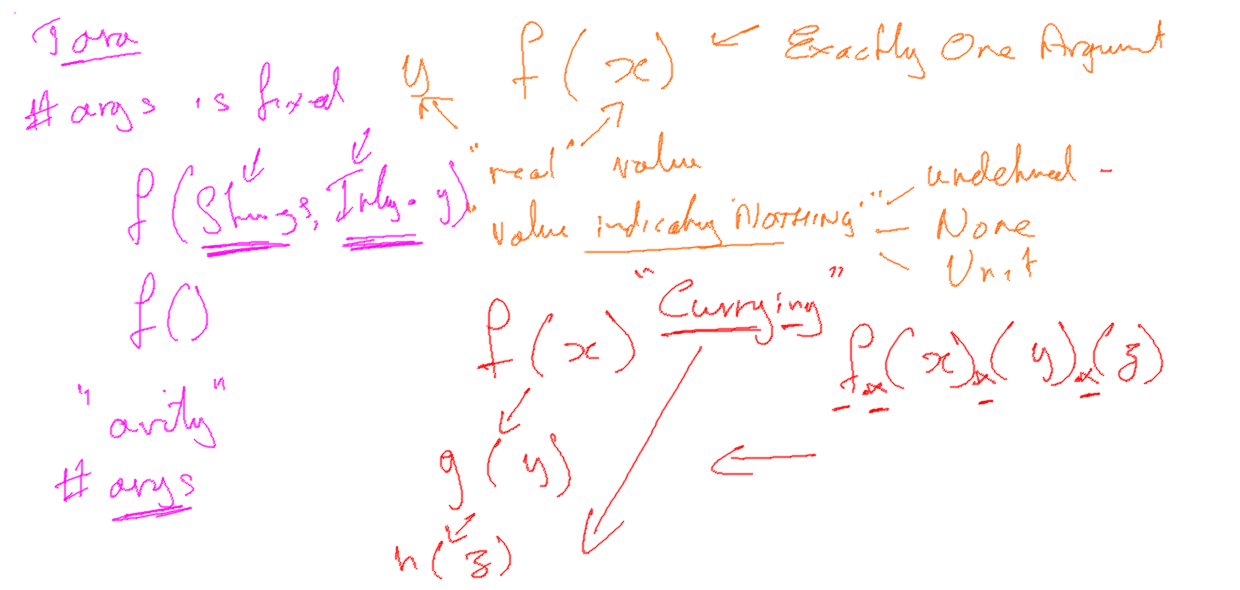 Java
# args is fixed
f(String s, Integer y)
f()
"arity"
# args
y f(x) Exactly One Argument
"real" value
value indicating "NOTHING"
undefined
None
Unit
"Currying"
f(x)
g(y)
h(z)
f(x)(y)(z)